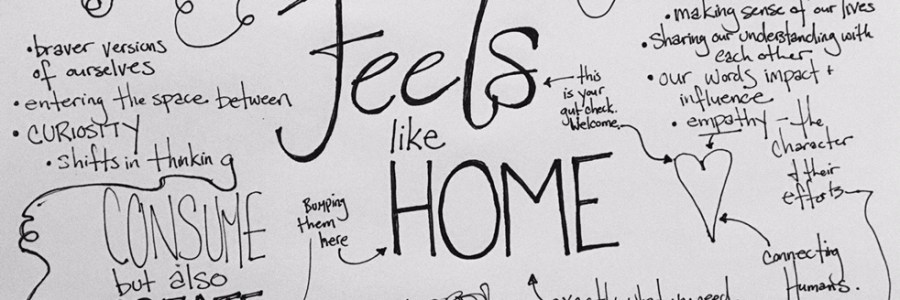 • braver versions
of ourselves
• entering the space between
• CURIOSITY
• shifts in thinking
CONSUME
but also
CREATE
Feels
like
HOME
this
is your
gut check.
Welcome.
Bumping
them
here
• making sense of our lives
• Sharing our understanding with
each other
• our words impact +
influence
• empathy - the
character
of their
efforts
Connecting
Humans.
exactly what you need